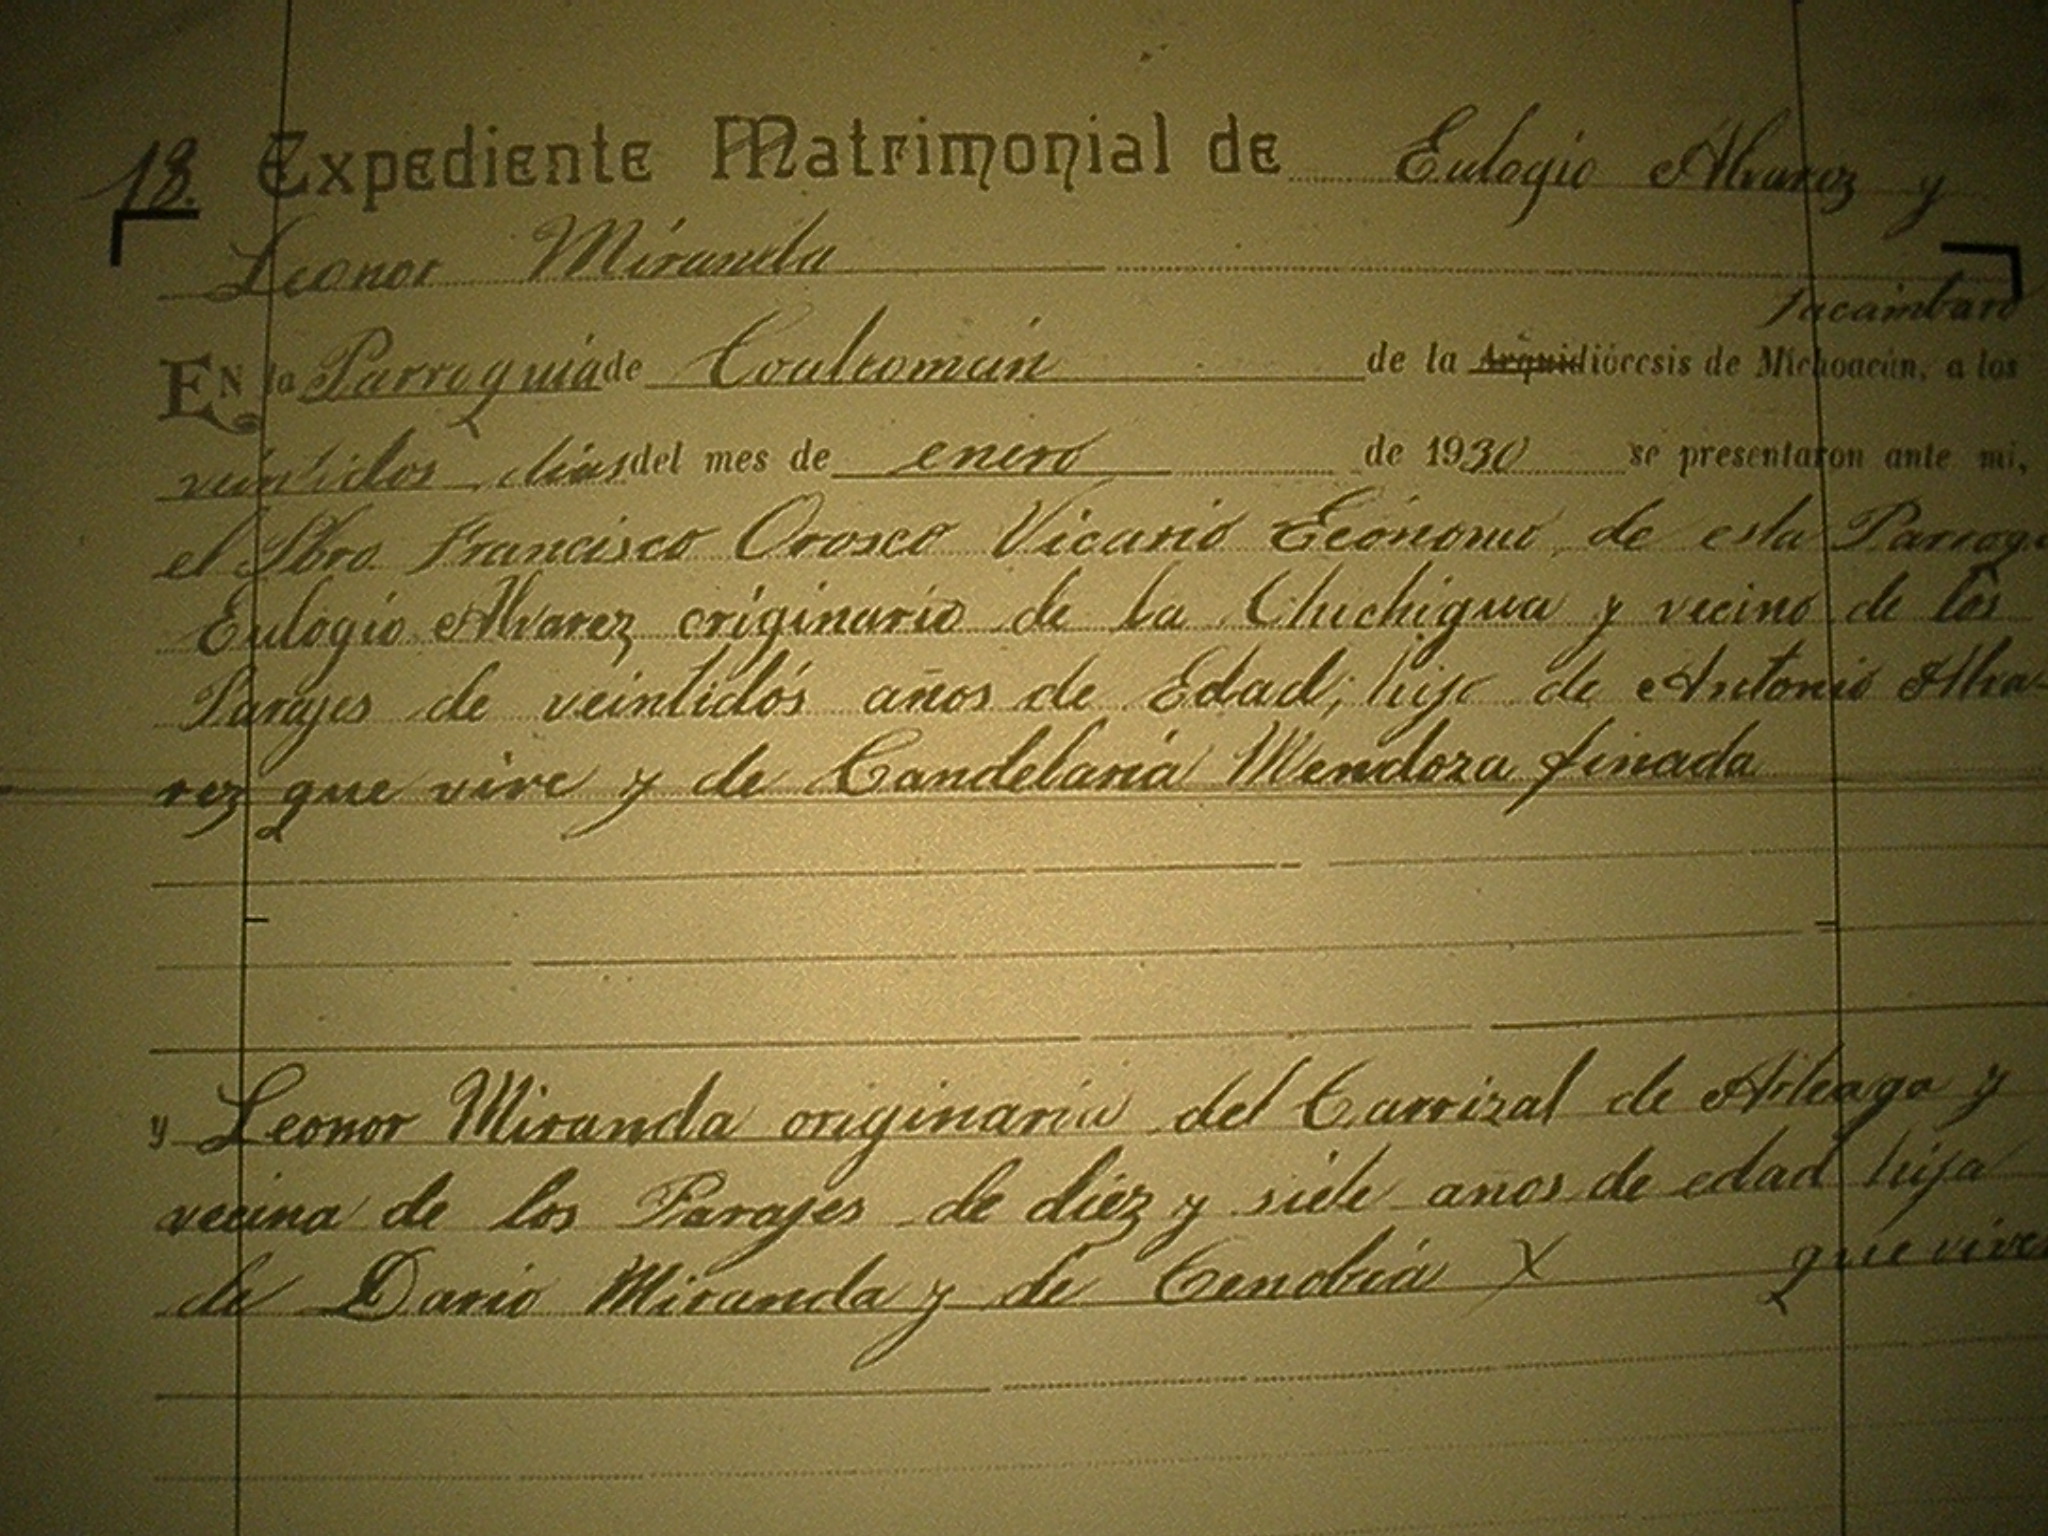 18. Expediente Matrimonial de Eulogio Alvarez y
Leonor Miranda
Tacambaro
EN la Parroquia de Coalcomán de la Arquidiócesis de Michoacán, a los
veintidos dias del mes de enero de 1930 se presentaron ante mi,
el Pbro. Francisco Orosco Vicario Ecónomo de esta Parroq.
Eulogio Alvarez originario de la Chichigua y vecino de los
Parajes de veintidós años de Edad; hijo de Antonio Alva-
rez que vive y de Candelaria Mendoza finada
y Leonor Miranda originaria del Carrizal de Arteaga y
vecina de los Parajes de diez y siete años de edad hija
de Dario Miranda y de Cenobia X que viven